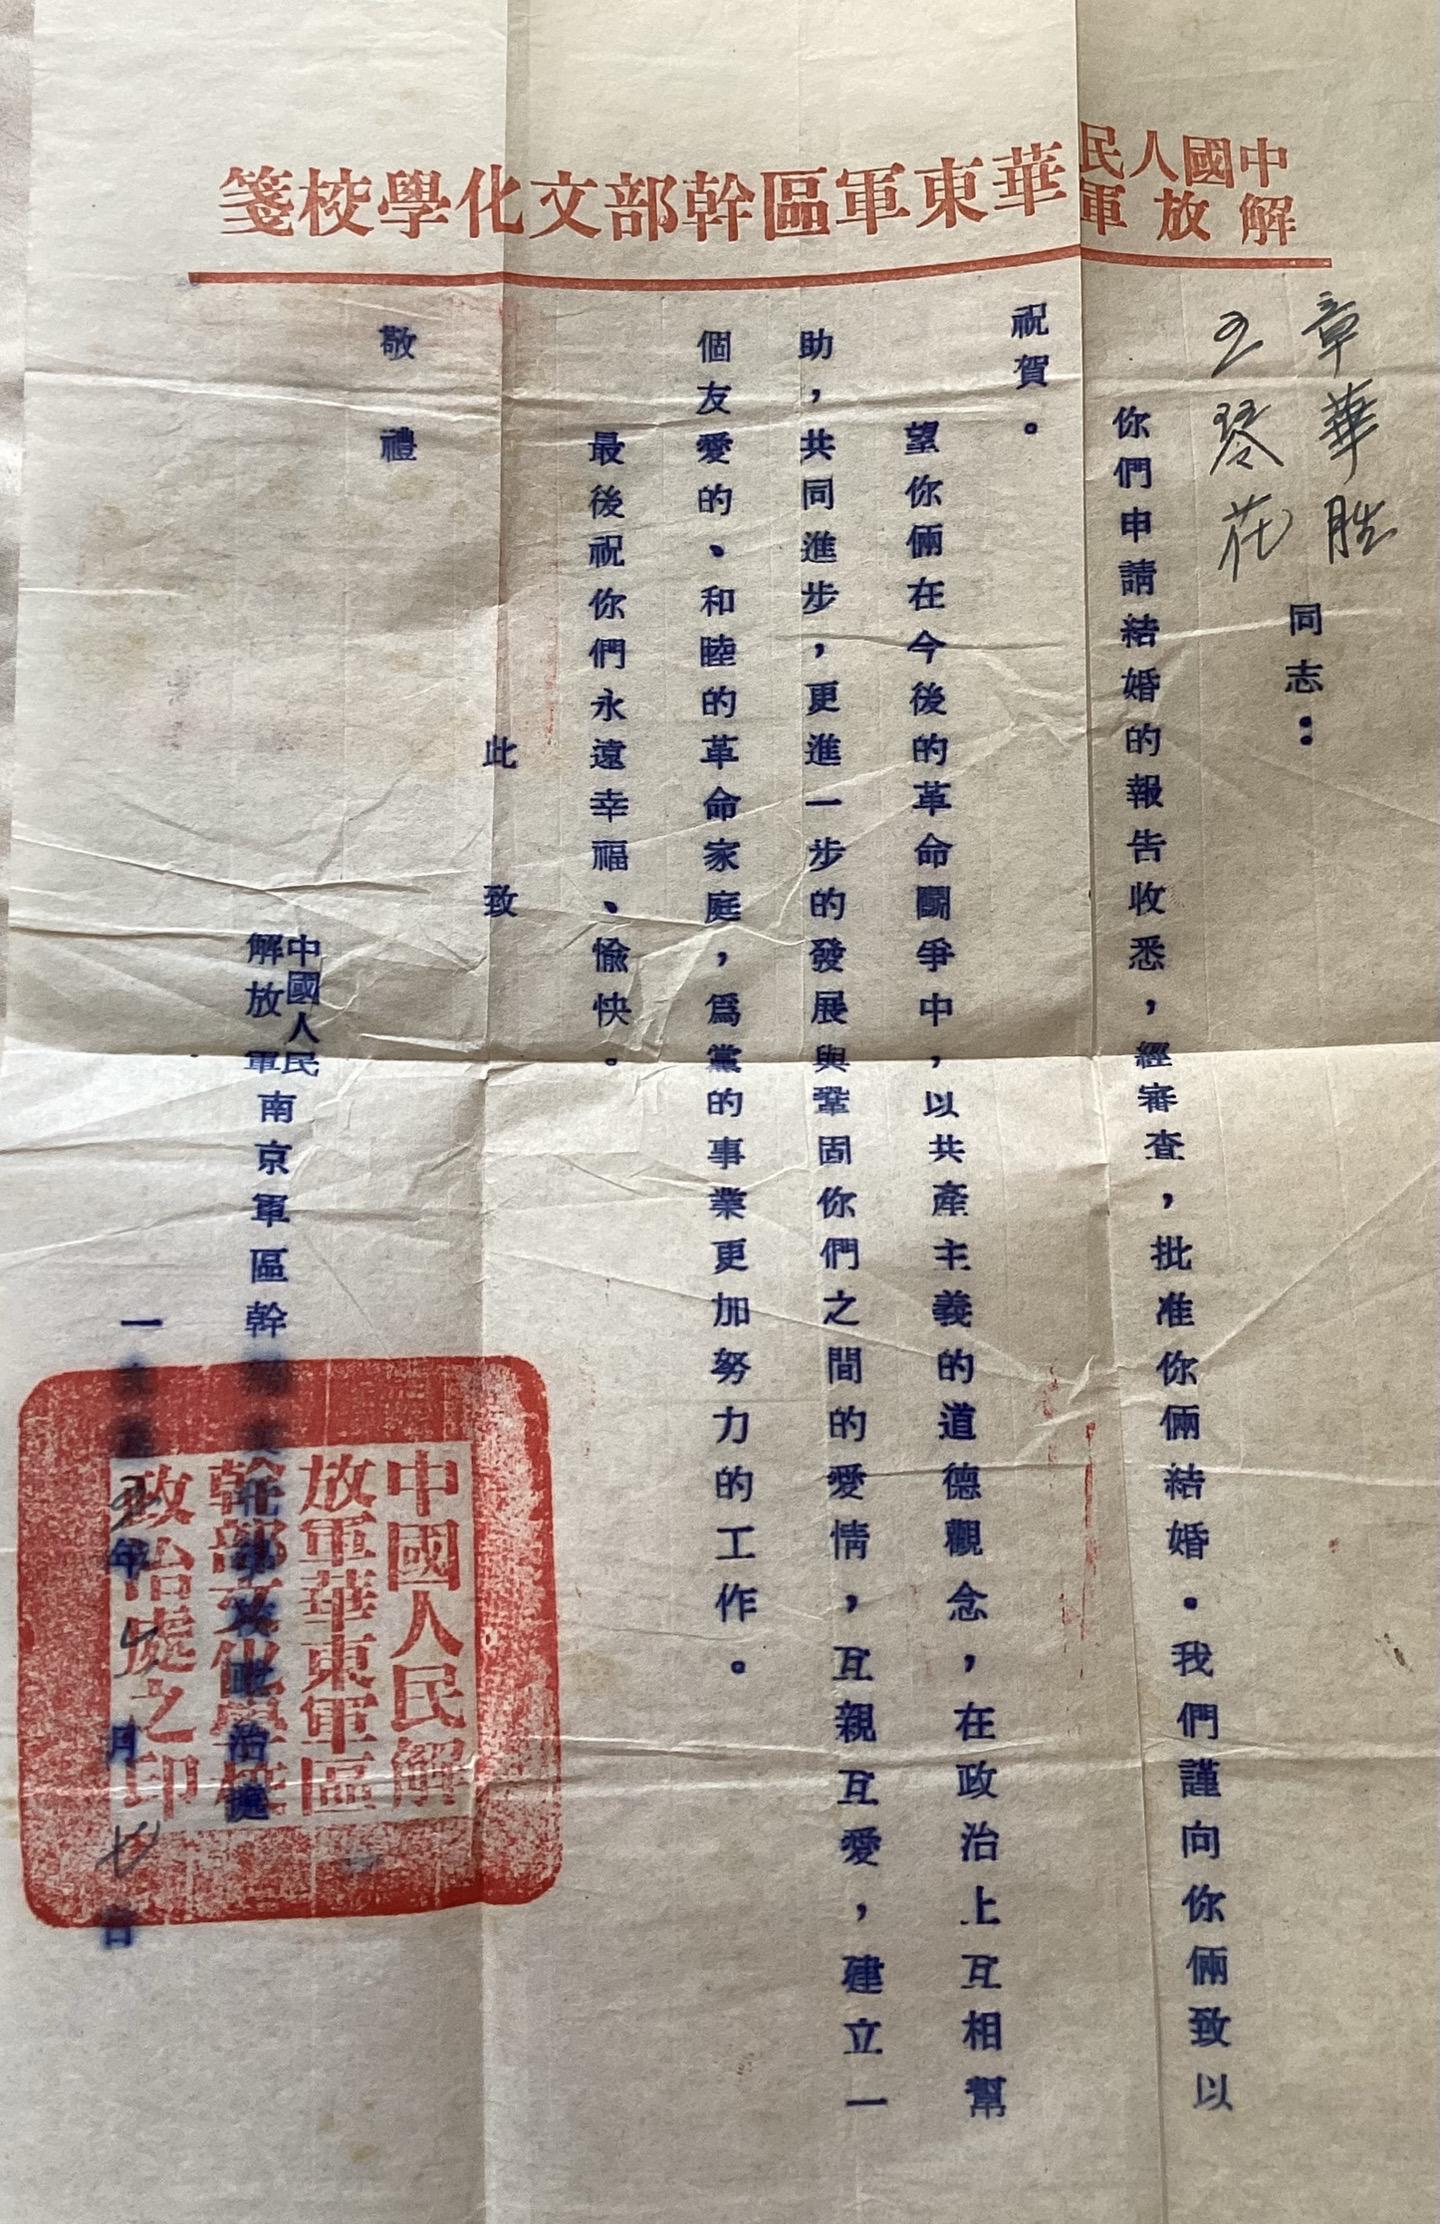 中國人民
解放軍
華東軍區幹部文化學校箋
章華胜
王琴花
同志：
你們申請結婚的報告收悉，經審查，批准你倆結婚。我們謹向你倆致以
祝賀。
望你倆在今後的革命鬭爭中，以共產主義的道德觀念，在政治上互相幫
助，共同進步，更進一步的發展與鞏固你們之間的愛情，互親互愛，建立一
個友愛的、和睦的革命家庭，爲黨的事業更加努力的工作。
最後祝你們永遠幸福、愉快。
此致
敬禮
中國人民
解放軍南京軍區幹部文化學校政治處
一 年 月七日
中國人民解
放軍華東軍區
幹部文化學校
政治處之印